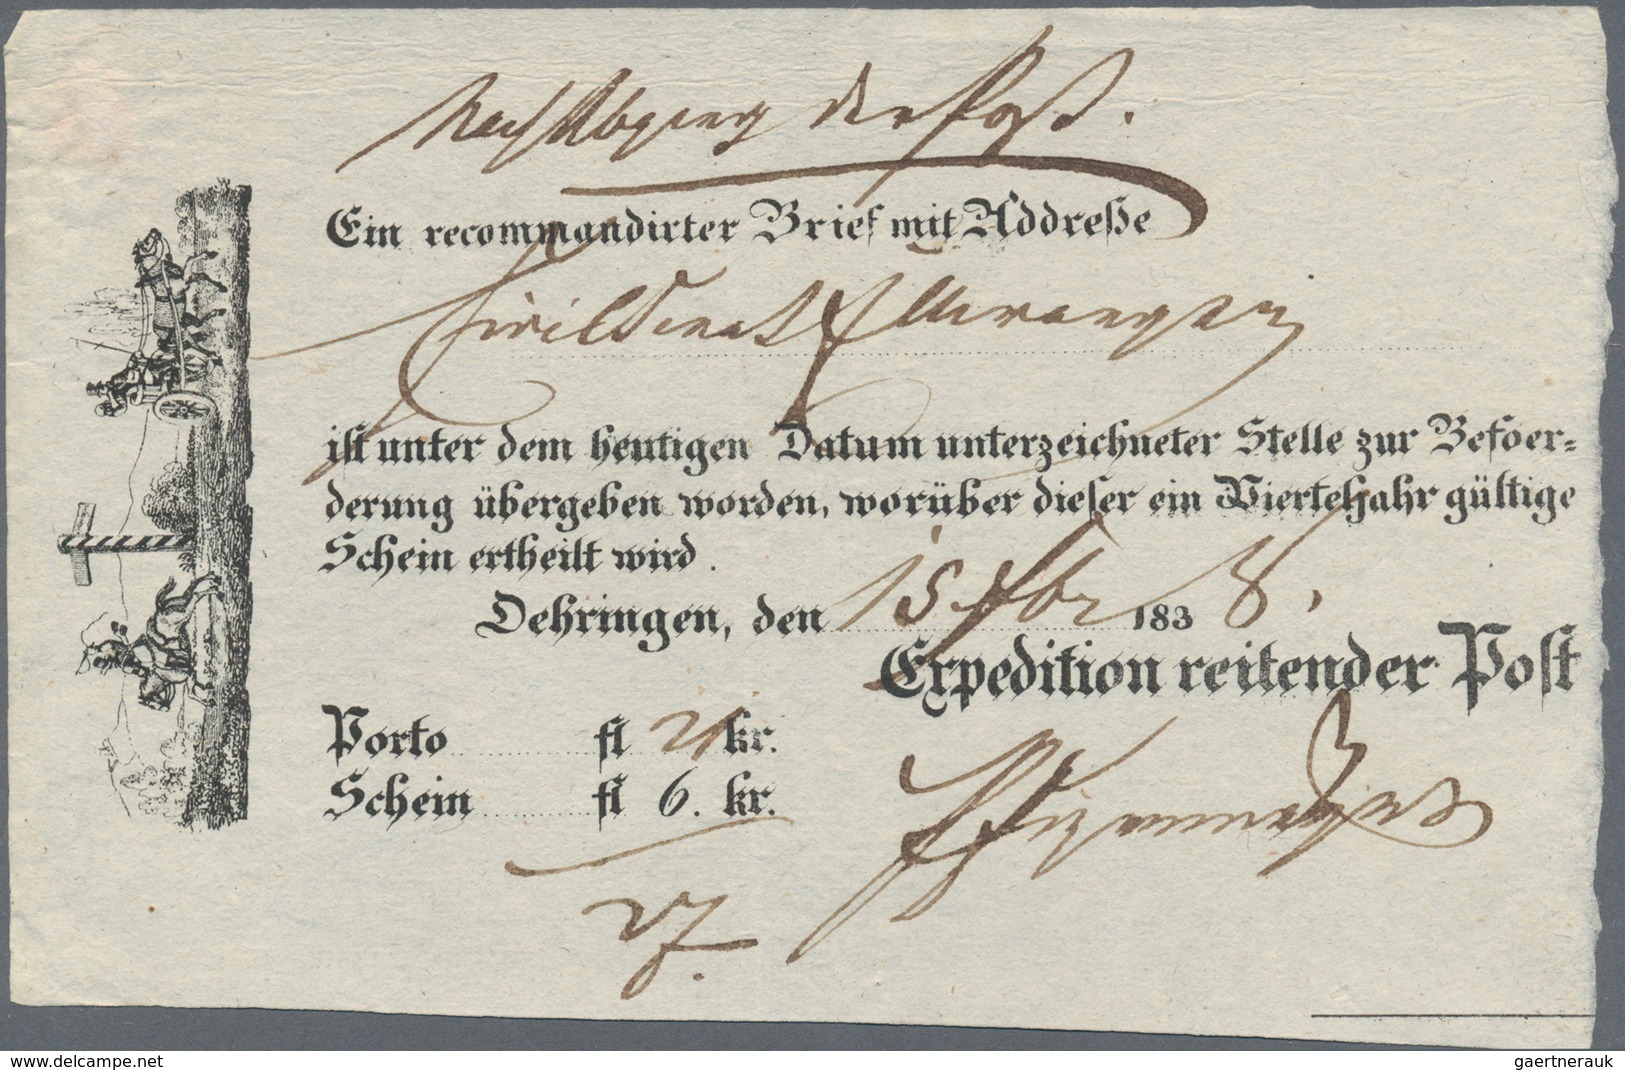 Nach Abgang der Post.
Ein recommandirter Brief mit Addreße
Civil Senat Ellwangen
ist unter dem heutigen Datum unterzeichneter Stelle zur Befoer=
derung übergeben worden, worüber dieser ein Vierteljahr gültige
Schein ertheilt wird.
Oehringen, den 15 Xbr 1838.
Expedition reitender Post
Porto fl 21 kr.
Schein fl 6. kr.
27.
www.delcampe.net
gaertnerauk